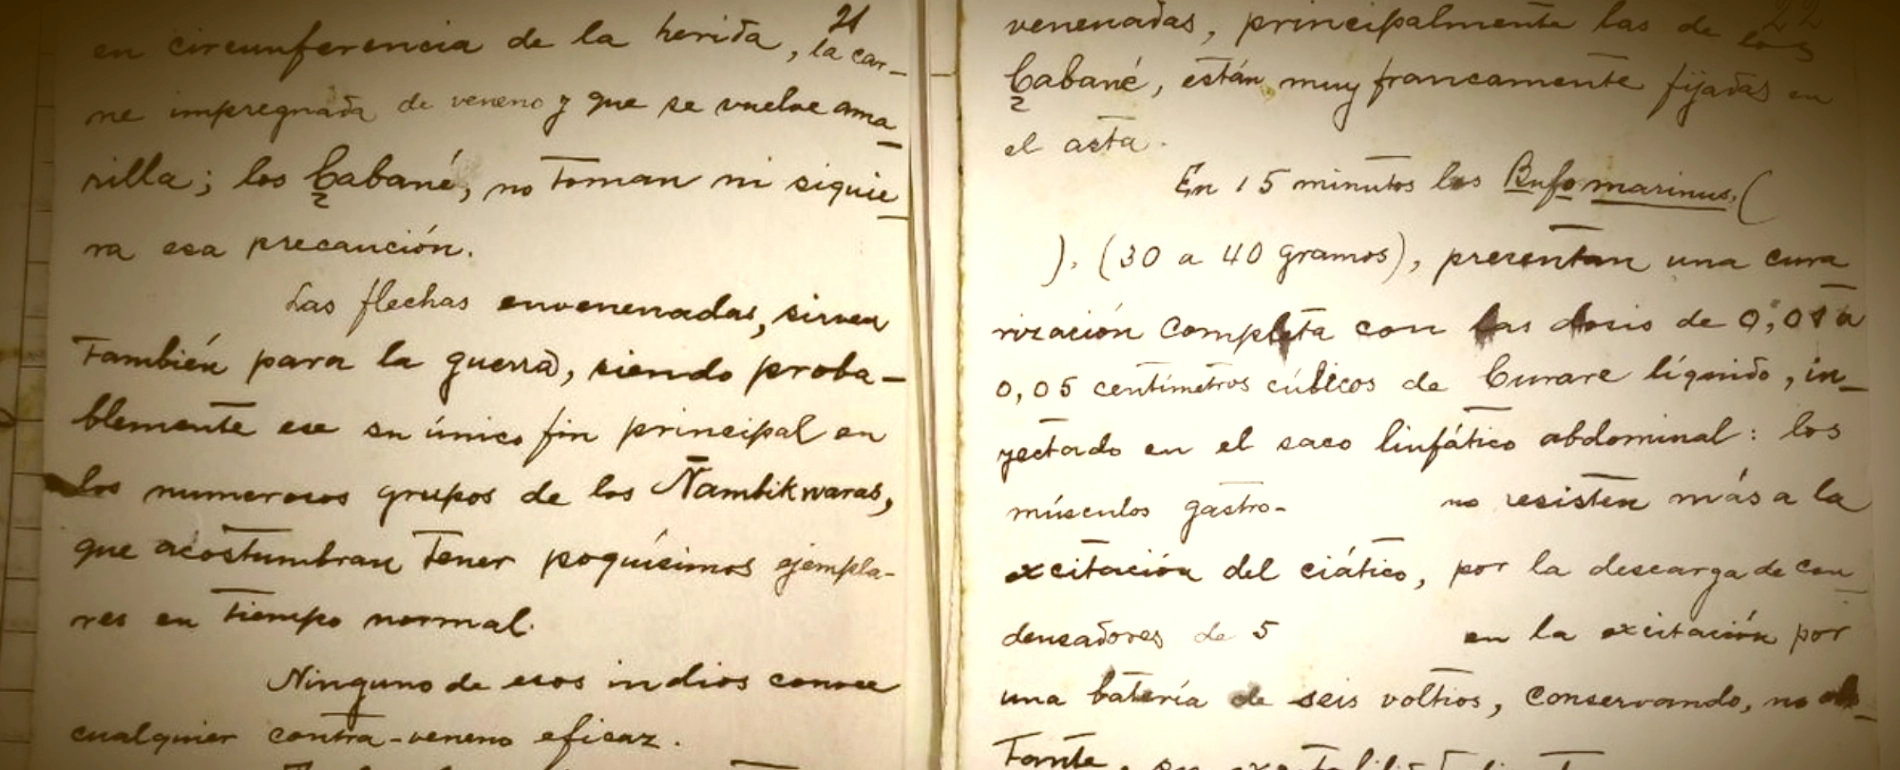 21
en circunferencia de la herida, la car-
ne impregnada de veneno y que se vuelve ama-
rilla; los Cabané, no toman ni siquie-
ra esa precaución.
Las flechas envenenadas, sirven
también para la guerra, siendo proba-
blemente ese su único fin principal en
los numerosos grupos de los Ñambikwaras,
que acostumbran tener poquísimos ejempla-
res en tiempo normal.
Ninguno de esos indios conoce
cualquier contra-veneno eficaz.
22
venenadas, principalmente las de los
Cabané, están muy francamente fijadas en
el asta.
En 15 minutos los Bufo marinus, (
), (30 a 40 gramos), presentan una cura
rización completa con las dosis de 0,01 a
0,05 centímetros cúbicos de Curare líquido, in-
yectado en el saco linfático abdominal: los
músculos gastro- no resisten más a la
excitación del ciático, por la descarga de con-
densadores de 5 en la excitación por
una batería de seis voltios, conservando, no obs-
tante, su